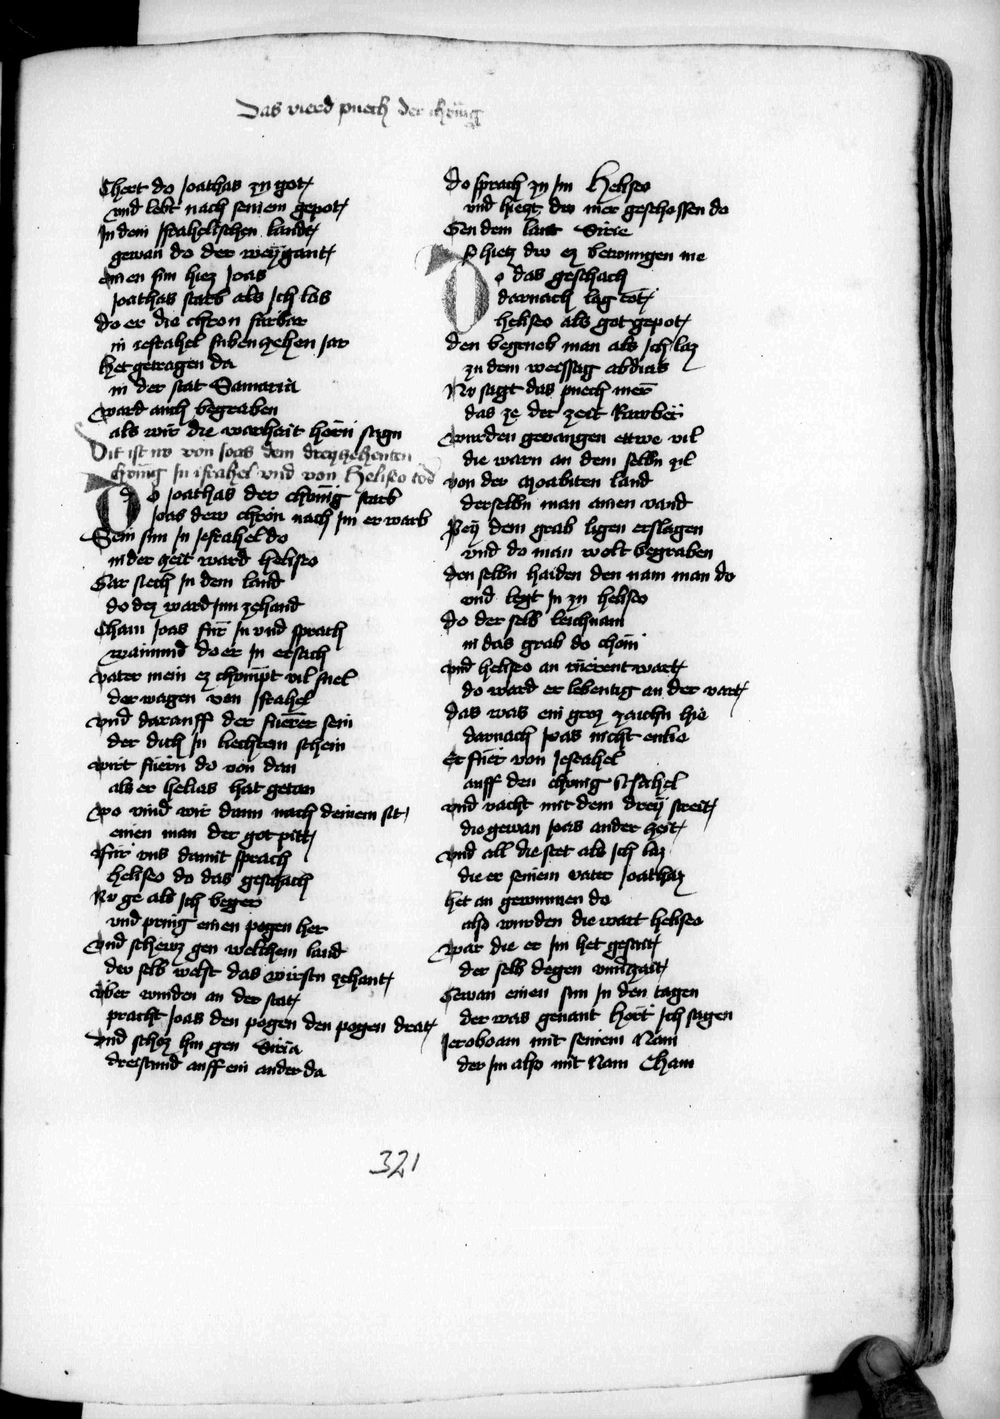 Das vierd puech der chonig
Chert do Joathas zu got
vnd lebt nach seinem gepot
In dem Israhelischen landt
gewan do der weygant
einen sun hiez Joas
Joathas starb als Ich las
do er die chron furbar
in israhel subenzehen Jar
Het getragen da
in der stat Samaria
Ward auch begraben
als wir die warhait horn sagn
Dit ist nv von Joas dem dreyzehenten
chonig In israhel vnd von Heliseo tod
Do Joathas der chonig starb
Joas dew chron nach Im erwarb
Sein sun In Jsrahel do
in der zeit ward heliseo
Gar siech In dem land
do dez ward Inn zehand
Cham Joas fur In vnd sprach
wainund do er In ersach
Vater mein ez chompt vil snel
der wagen von Israhel
Vnd darauff der fuerer sein
der dich In liechtem schein
Wirt fuern do von dan
als er helias hat getan
Wo vind wir dann nach deinem sit
einen man der got pitt
Fur vns damit sprach
heliseo do das geschach
Nv ge als Ich beger
vnd pring einen pogen her
Vnd schewz gen welchem land
dw selb welst das wirstu zehant
Vber winden an der stat
pracht Joas den pogen den pogen drat
Vnd schoz hin gen Siria
dreistund auff ein ander da
do sprach zu Im Heliseo
vnd hiezt dw mer geschossen do
Gen dem lant Sirie
So hietz dw ez betwungen nie
Do das geschach
darnach lag tot
heliseo als got gepot
den begrueb man als Ich laz
zu dem weissag abdias
Nv sagt das puech mer
das ze der zeit Rawber
Wurden gevangen ettwe vil
die warn an dem selbn zil
Von der Moabiten land
derselbn man ainen vand
Pey dem grab ligen erslagen
vnd do man wolt begraben
den selbn haiden den nam man do
vnd legt In zu heliseo
do der selb leichnam
in das grab do chom
Vnd heliseo an ruerent wart
do ward er lebentig an der vart
das was ein groz zaichn hie
darnach Joas nicht enlie
Er fuer von Jsrahel
auff den chunig Asahel
Vnd vacht mit dem drey streit
die gewan Joas ander zeit
Vnd all die stet als Ich laz
die er seinem vater Joathaz
het an gewunnen do
also wurden die wart heliseo
War die er Im het gesait
der selb degen vnuerzait
Gewan einen sun In den tagen
der was genant hort Ich sagen
Jeroboam mit seinem Nam
der Im also mit Nam Cham
321